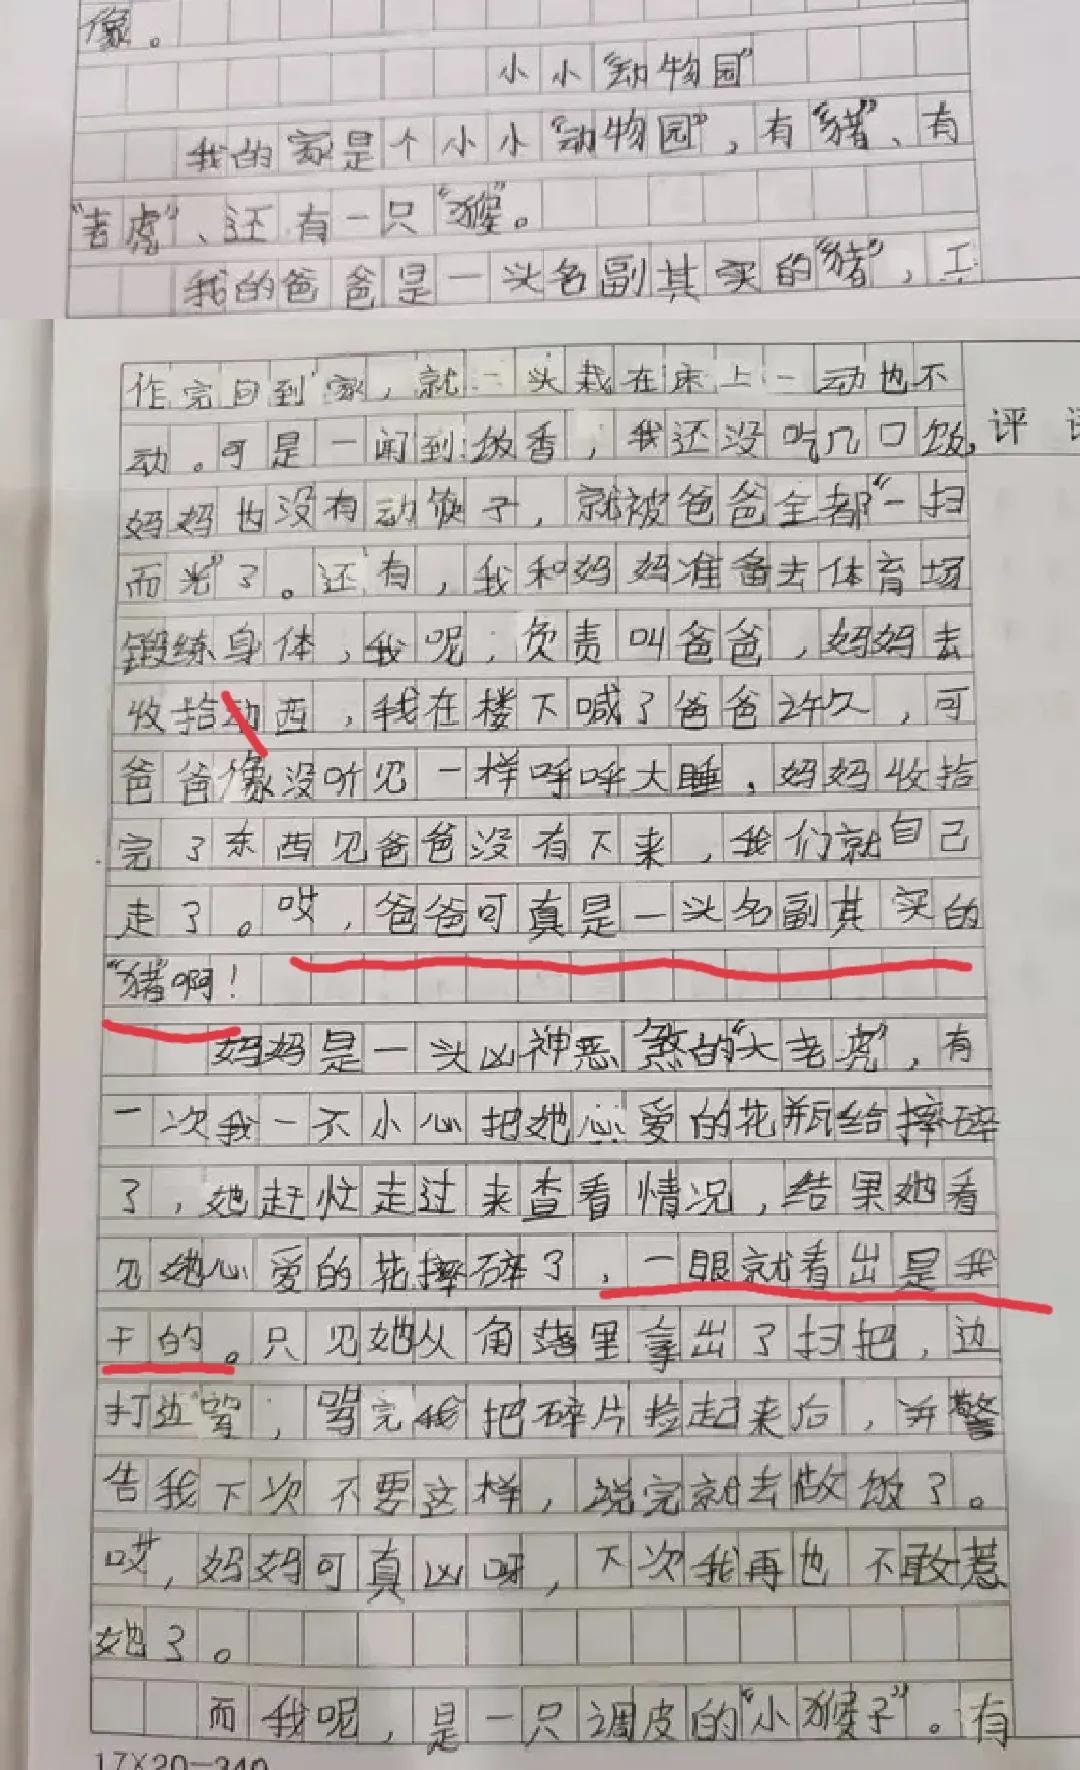 像。
小小“动物园”
我的家是个小小“动物园”,有“猪”、有
“老虎”、还有一只“猴”。
我的爸爸是一头名副其实的“猪”,工
作完回到家,就一头栽在床上一动也不
动。可是一闻到饭香,我还没吃几口饭,
评
妈妈也没有动筷子,就被爸爸全都“一扫
而光”了。还有,我和妈妈准备去体育场
锻练身体,我呢,负责叫爸爸,妈妈去
收拾动西,我在楼下喊了爸爸许久,可
爸爸像没听见一样呼呼大睡,妈妈收拾
完了东西见爸爸没有下来,我们就自己
走了。哎,爸爸可真是一头名副其实的
“猪”啊!
妈妈是一头凶神恶煞的“大老虎”,有
一次我一不小心把她心爱的花瓶给摔碎
了,她赶忙走过来查看情况,结果她看
见她心爱的花摔碎了,一眼就看出是我
干的。只见她从角落里拿出了扫把,边
打边骂,骂完我把碎片捡起来后,并警
告我下次不要这样,说完就去做饭了。
哎,妈妈可真凶呀,下次我再也不敢惹
她了。
而我呢,是一只调皮的“小猴子”。有
17×20=340